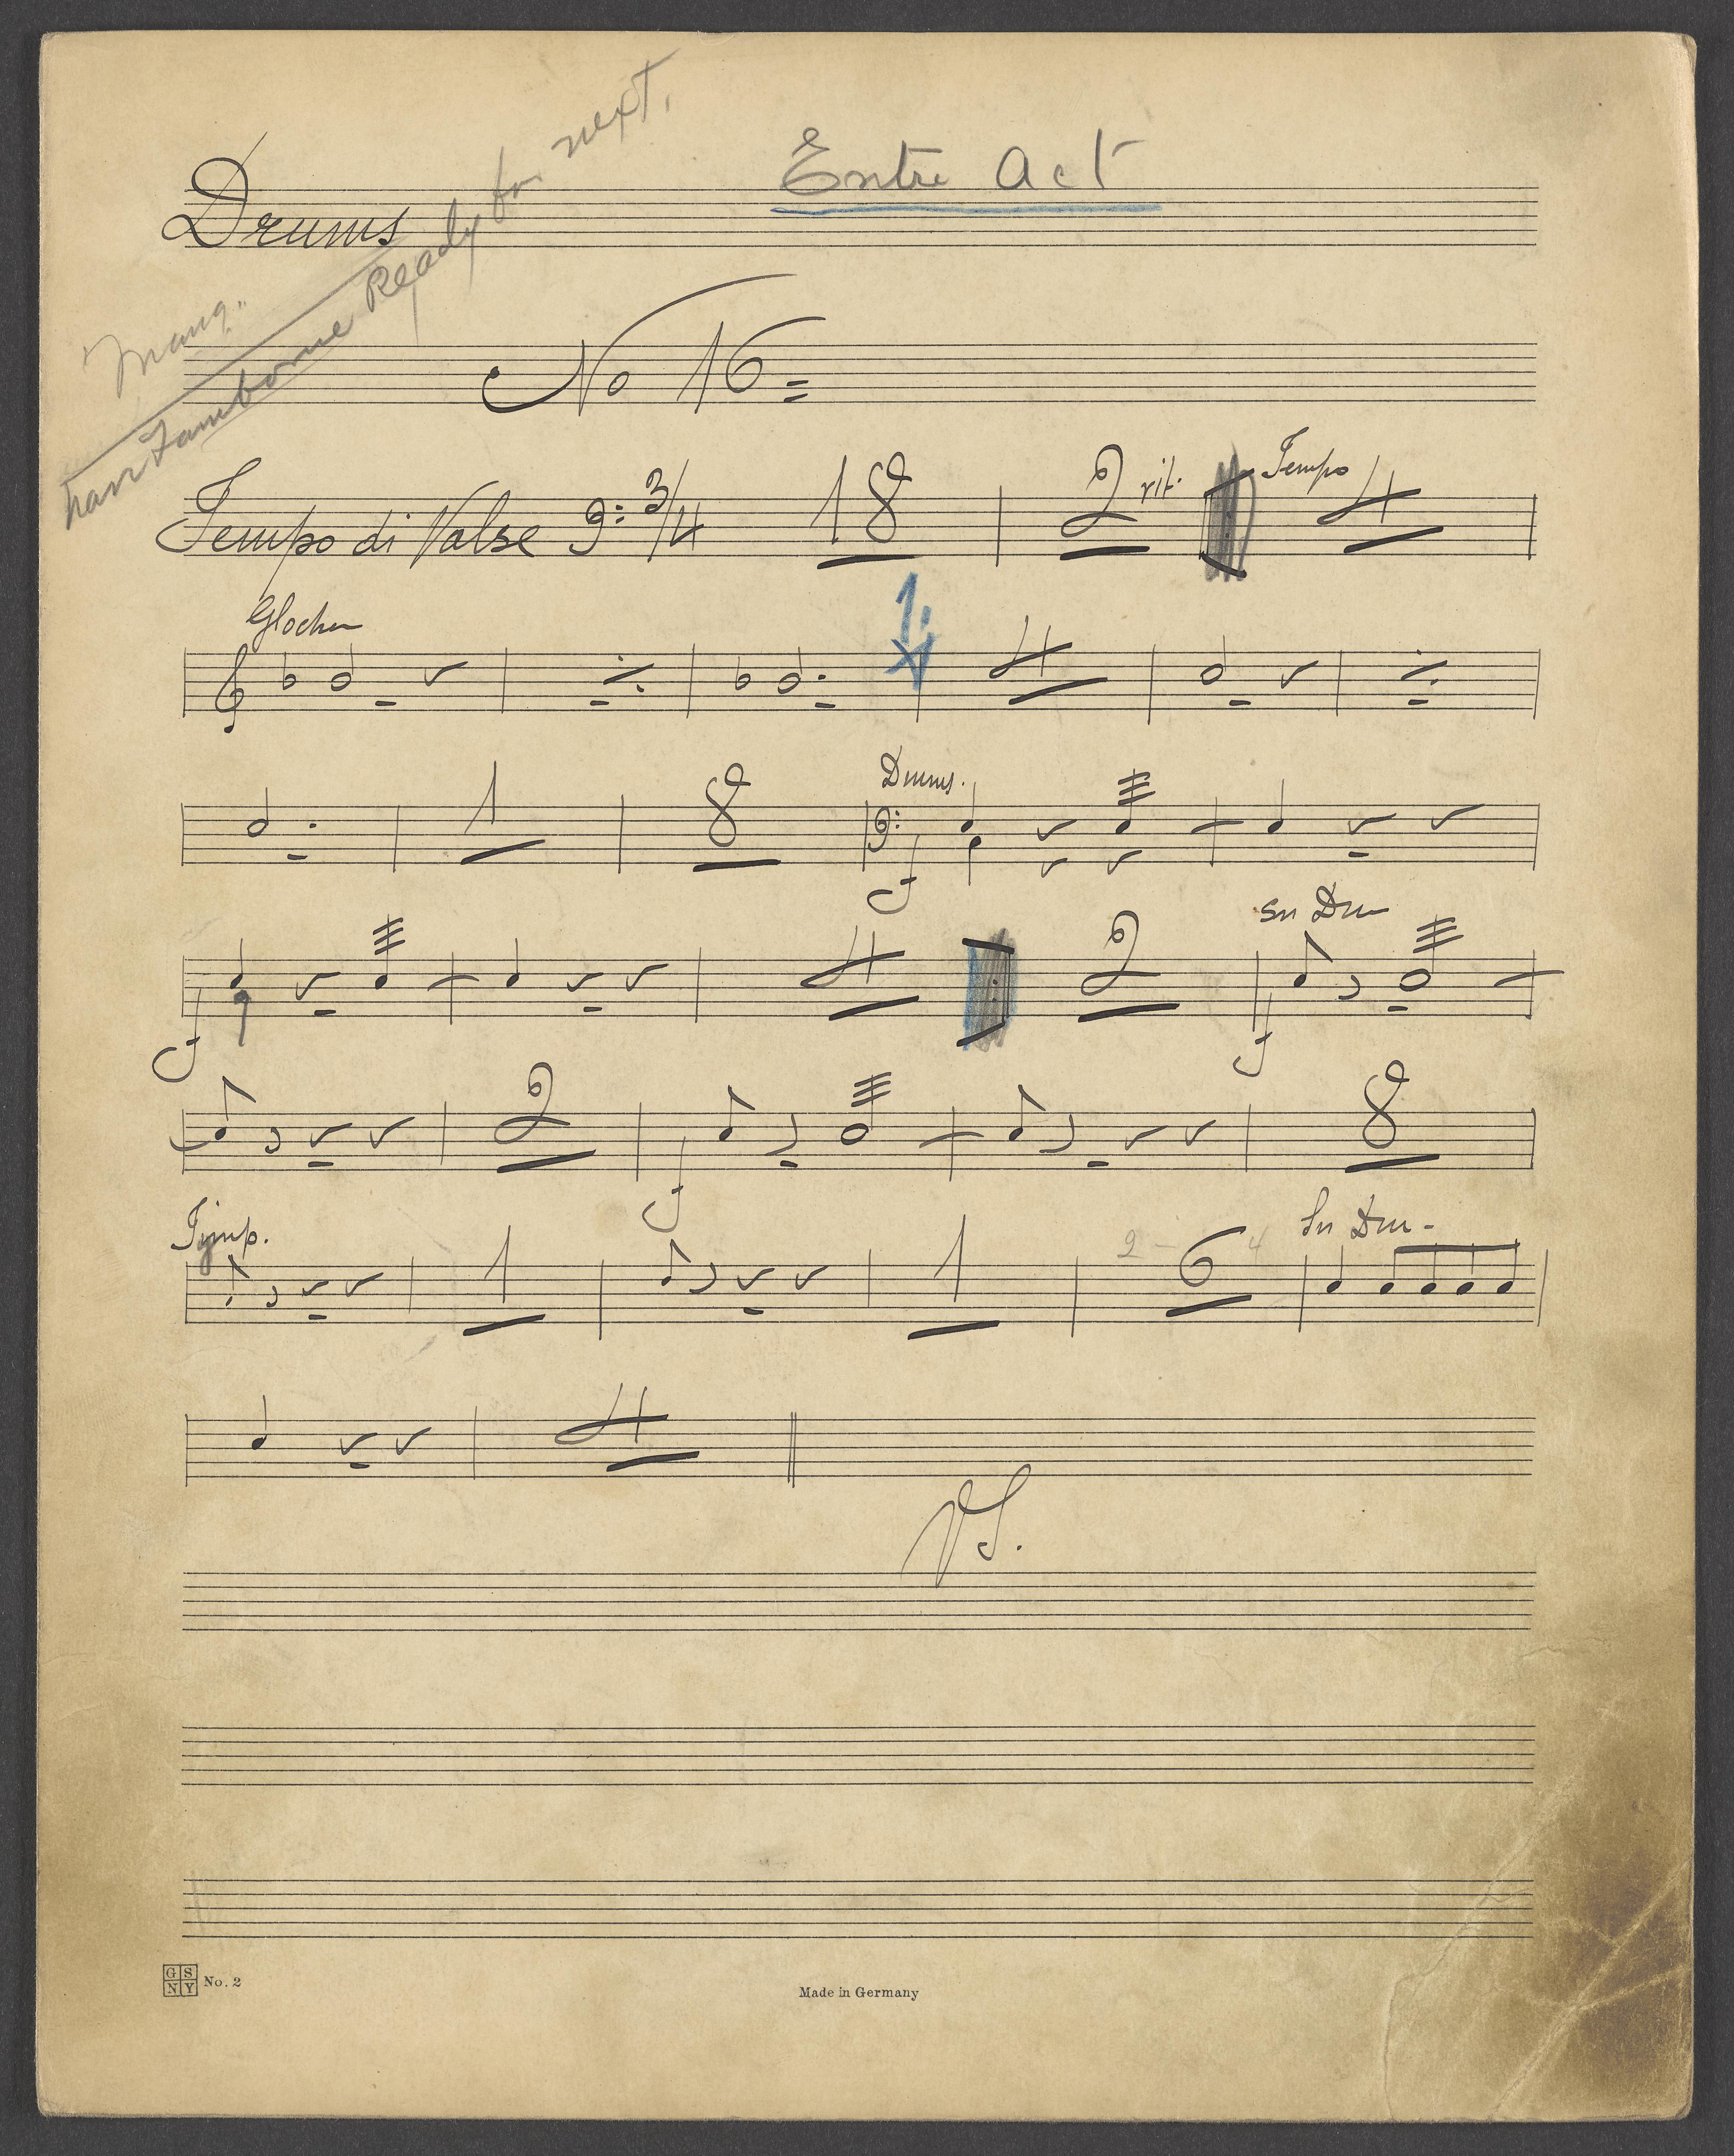 Entre Act
Drums
Have Tamborne Ready for next.
No 16
Tempo di Valse 3/4 18 2 rit. Tempo 4
Glocken
1. 4
1 8 Drums. f
f 4 2 Sn Drm f
2 f 8
Timp.
1 1 2 - 6 4 Sn Drm -
4
VS.
GS
NY No. 2
Made in Germany